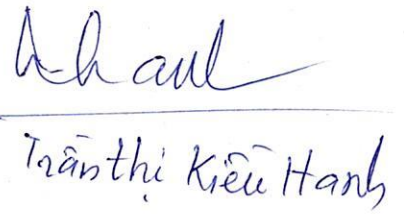 Trần thị Kiều Hanh